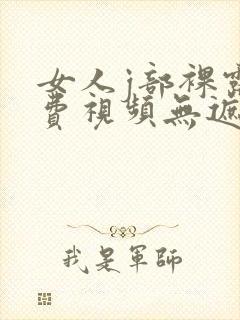 女人j部裸露
費視頻無遮
我是軍師